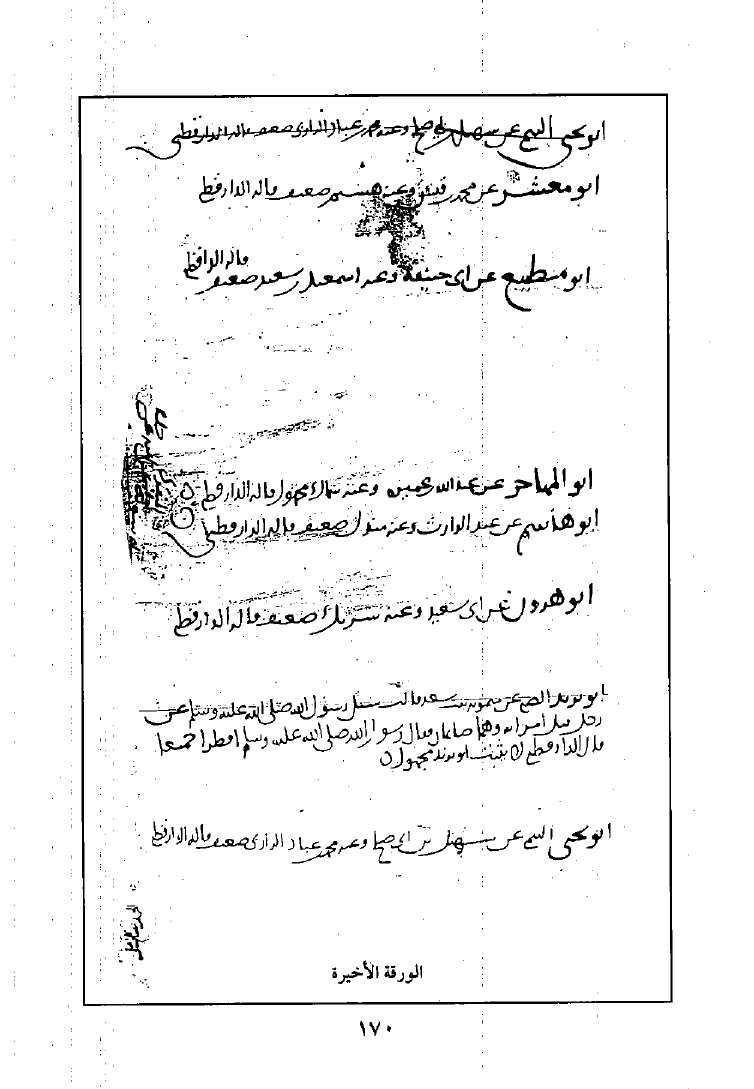 ابو يحيى التيمي عن سهيل بن ابي صالح وعنه محمد بن عباد الرازي ضعيف قاله الدارقطني
ابو معشر عن محمد بن قيس وعنه هشيم ضعيف قاله الدارقطني
ابو مطيع عن ابي حنيفة وعنه اسمعيل بن سعيد ضعيف قاله الدارقطني
ابو المهاجر عن عبد الله بن عميرة وعنه سماك مجهول قاله الدارقطني
ابو هاشم عن عبد الوارث وعنه ضعيف قاله الدارقطني
ابو هرون عن ابي سعيد وعنه شريك ضعيف قاله الدارقطني
ابو يزيد الضبي عن ميمونة بنت سعد قالت سئل رسول الله صلى الله عليه وسلم عن
رجل قبل امراته وهما صايمان فقال رسول الله صلى الله عليه وسلم افطرا جميعا
قال الدارقطني لا يثبت ابو يزيد مجهول
ابو يحيى التيمي عن سهيل بن ابي صالح وعنه محمد بن عباد الرازي ضعيف قاله الدارقطني
الورقة الأخيرة
١٧٠